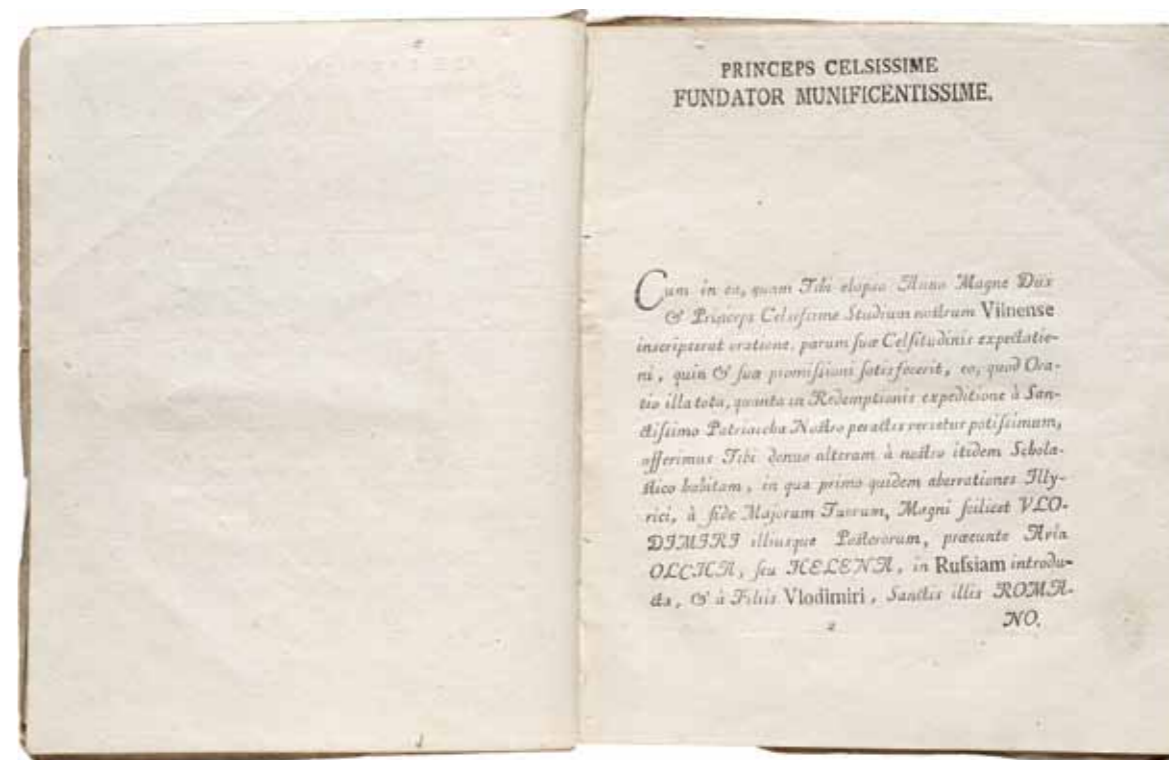 PRINCEPS CELSISSIME
FUNDATOR MUNIFICENTISSIME.
Cum in ea, quam Tibi elapso Anno Magne Dux
& Princeps Celsissime Studium nostrum Viinense
inscripserat oratione, parum suæ Celsitudinis expectatio-
ni, quin & suæ promissioni satisfecerit, eo, quod Ora-
tio illa tota, quanta in Redemptionis expeditione à San-
ctissimo Patriarcha Nostro peractis versetur potissimum,
offerimus Tibi denuo alteram à nostro itidem Schola-
stico habitam, in qua primo quidem aberrationes Illy-
rici, à fide Majorum Tuorum, Magni scilicet VLO-
DIMIRI illiusque Posterorum, præeunte Avia
OLCHA, seu HELENA, in Russiam introdu-
cta, & à Filiis Vlodimiri, Sanctis illis ROMA-
2 NO.